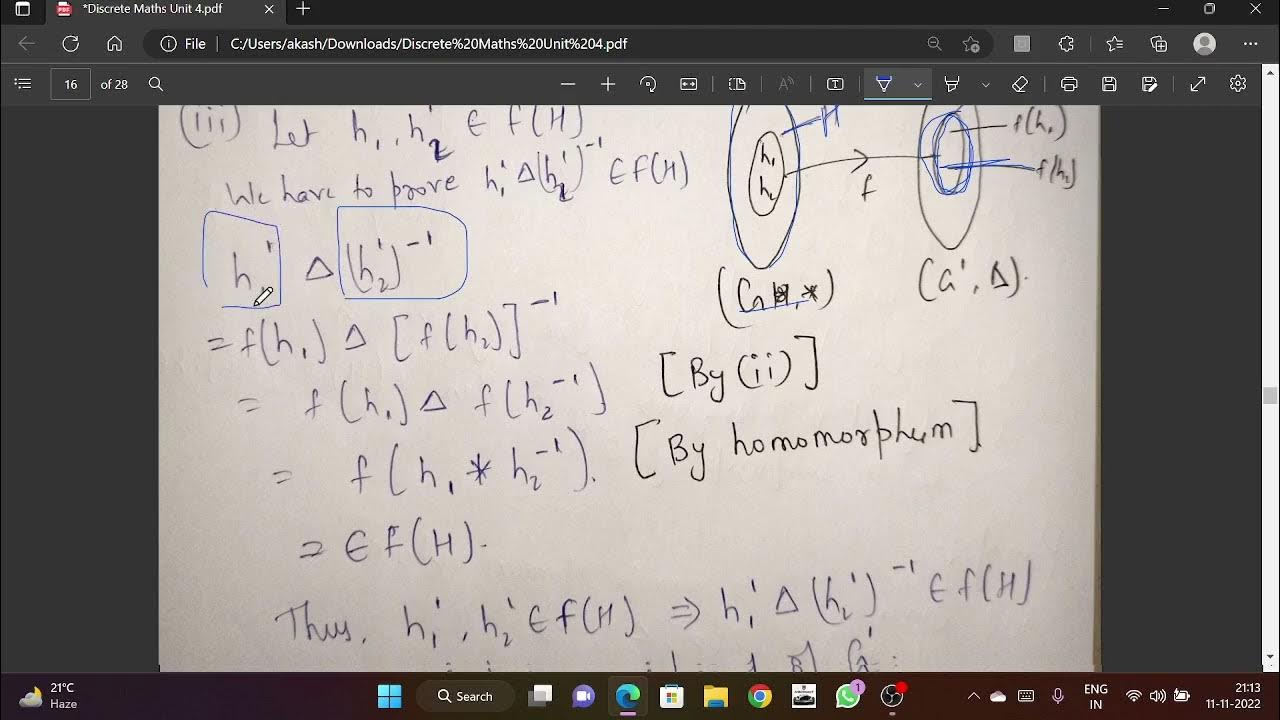 *Discrete Maths Unit 4.pdf
File C:/Users/akash/Downloads/Discrete%20Maths%20Unit%204.pdf
16 of 28
(iii) Let h₁, h₂' ∈ f(H)
We have to prove h₁' Δ (h₂')⁻¹ ∈ f(H)
h₁' Δ (h₂')⁻¹
= f(h₁) Δ [f(h₂)]⁻¹
= f(h₁) Δ f(h₂⁻¹) [By (ii)]
= f(h₁ * h₂⁻¹). [By homomorphum]
= ∈ f(H).
Thus, h₁', h₂' ∈ f(H) ⇒ h₁' Δ (h₂')⁻¹ ∈ f(H)
H
h₁
h₂
f
f(h₁)
f(h₂)
(G, *)
(G', Δ).
21°C
Haze
Search
1
ENG
IN
21:13
11-11-2022